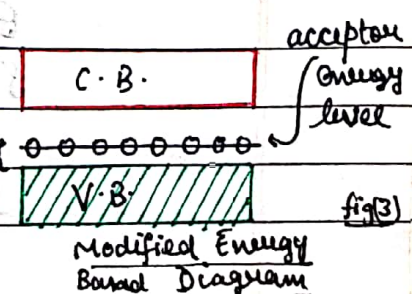 acceptor
energy
level
C.B.
V.B.
fig(3)
Modified Energy
Band Diagram